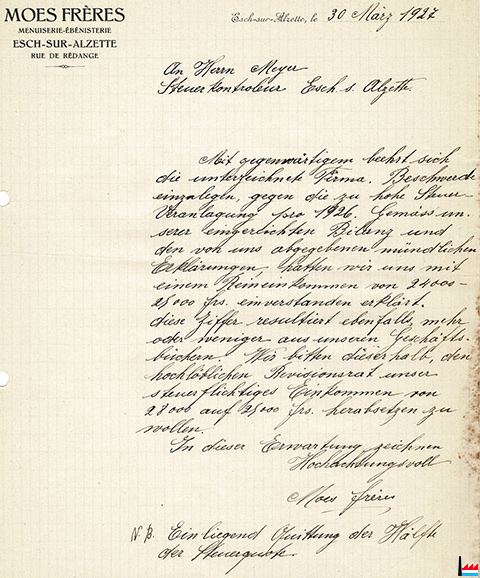 MOES FRÈRES
MENUISERIE-ÉBÉNISTERIE
ESCH-SUR-ALZETTE
RUE DE RÉDANGE
Esch-sur-Alzette, le 30 März 1927
An Herrn Meyer
Steuerkontroleur Esch s. Alzette.
Mit gegenwärtigem beehrt sich
die unterzeichnete Firma. Beschwerde
einzulegen, gegen die zu hohe Steuer-
Veranlagung pro 1926. Gemäss un-
serer eingereichten Bilanz und
den von uns abgegebenen mündlichen
Erklärungen, hatten wir uns mit
einem Reineinkommen von 24000-
25000 frs. einverstanden erklärt.
diese Ziffer resultiert ebenfalls mehr
oder weniger aus unseren Geschäfts-
büchern. Wir bitten dieserhalb, den
hochlöblichen Revisionsrat unser
steuerflichtiges Einkommen von
28000 auf 25000 frs. herabsetzen zu
wollen.
In dieser Erwartung zeichnen
Hochachtungsvoll
Moes frères
N.B. Einliegend Quittung der Hälfte
der Steuerquote.